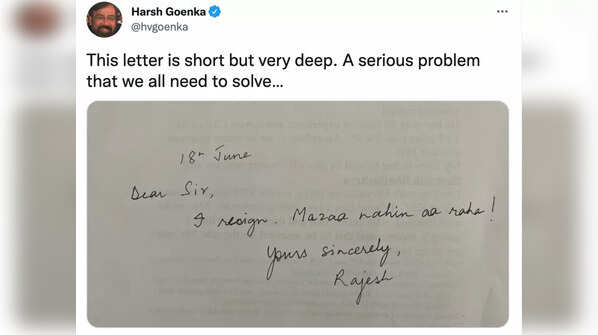 Harsh Goenka
@hvgoenka
This letter is short but very deep. A serious problem
that we all need to solve...
18th June
Dear Sir,
I resign. Mazaa nahin aa raha!
Yours sincerely,
Rajesh